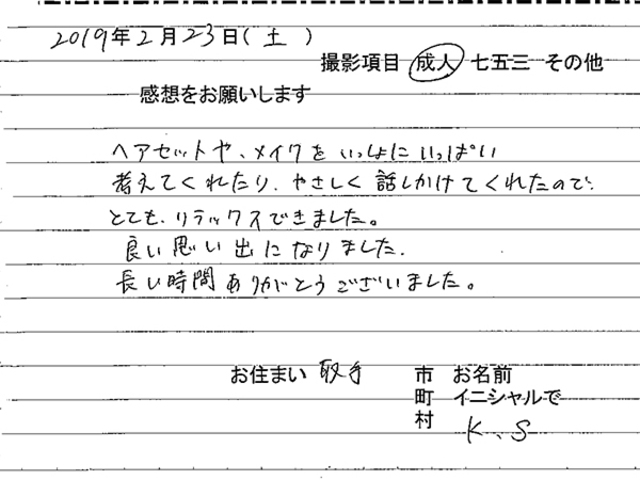 2019年2月23日(土)
撮影項目 成人 七五三 その他
感想をお願いします
ヘアセットや、メイクをいっしょにいっぱい
考えてくれたり、やさしく話しかけてくれたので、
とても、リラックスできました。
良い思い出になりました。
長い時間ありがとうございました。
お住まい 取手 市 お名前
町 イニシャルで
村 K.S